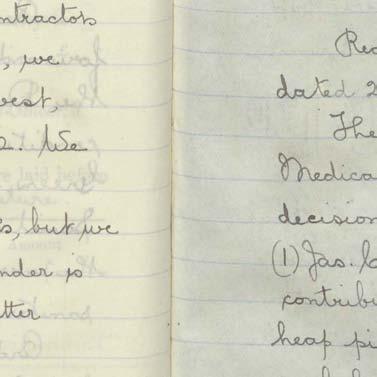 ntractors
, we
vest,
2. We
s, but we
nder is
tter
Rec
dated 2
The
Medica
decision
(1) Jas.
contribu
heap pi